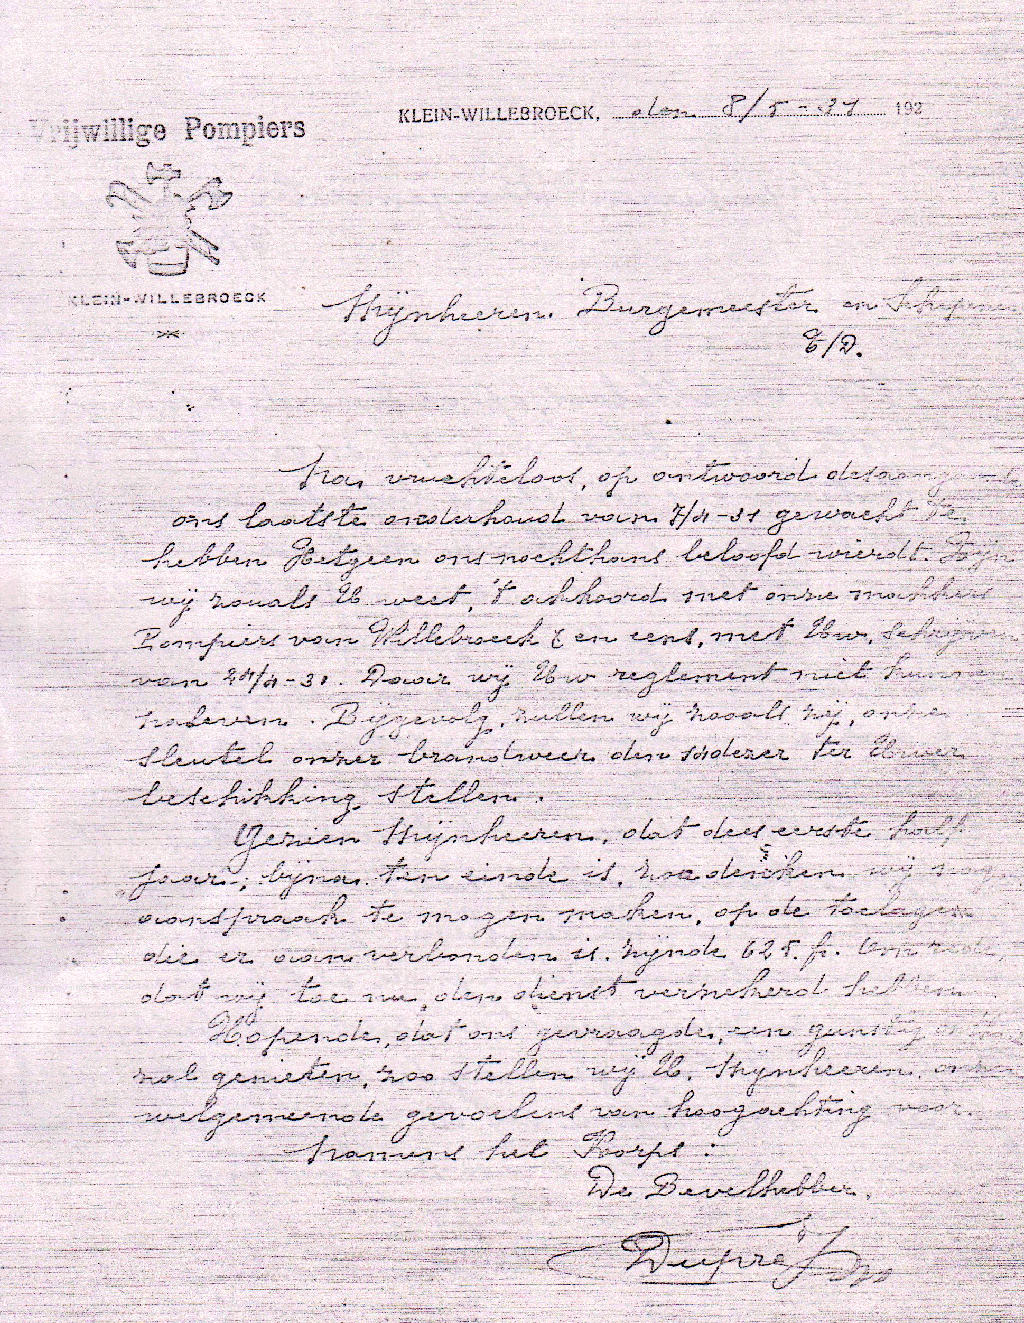 Vrijwillige Pompiers
KLEIN-WILLEBROECK, den 8/5-31 192
KLEIN-WILLEBROECK
Mijnheeren. Burgemeester en Schepenen
T/D.
Na, vruchteloos, op antwoord desaangaande
ons laatste onderhoud van 7/4-31 gewacht te
hebben Hetgeen ons nochthans beloofd wierdt. Zijn
wij zooals U weet, 't akkoord met onze makkers
Pompiers van Willebroeck & en eens, met Uw, Schrijven
van 24/4-31. Daar wij Uw reglement niet kunnen
naleven. Bijgevolg, zullen wij zooals zij, onze
sleutel onzer brandweer den 14dezer ter Uwer
beschikking stellen.
Gezien Mijnheeren, dat dees eerste half
jaar, bijna ten einde is, zoo denken wij nog
aanspraak te mogen maken, op de toelagen
die er aan verbonden is. zijnde 625. fr. Om rede,
dat wij toe nu, den dienst verzekerd hebben.
Hopende, dat ons gevraagde, een gunstig
zal genieten, zoo stellen wij U, Mijnheeren, onze
welgemeende gevoelens van hoogachting voor.
Namens het Korps:
De Bevelhebber.
Dupré